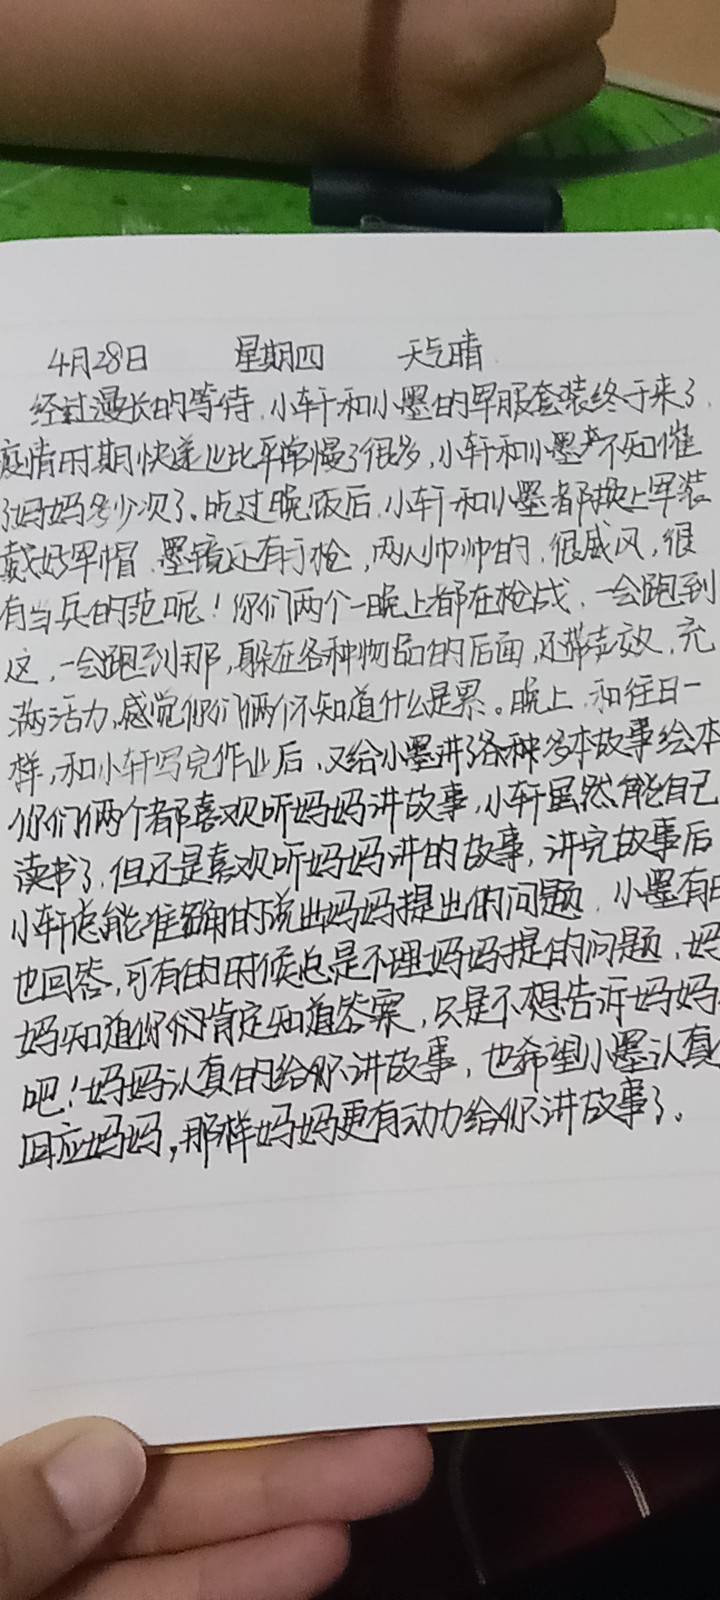 4月28日 星期四 天气晴
经过漫长的等待,小轩和小墨的军服套装终于来了,
疫情时期快递也比平常慢了很多,小轩和小墨不知催
了妈妈多少次了。吃过晚饭后,小轩和小墨都换上军装
戴好军帽、墨镜还有手枪,两人帅帅的,很威风,很
有当兵的范呢!你们两个一晚上都在枪战,一会跑到
这,一会跑到那,躲在各种物品的后面,还带声效,充
满活力,感觉你们俩个不知道什么是累。晚上,和往日一
样,和小轩写完作业后,又给小墨讲了各种多本故事绘本
你们俩个都喜欢听妈妈讲故事,小轩虽然能自己
读书了,但还是喜欢听妈妈讲的故事,讲完故事后
小轩总能准确的说出妈妈提出的问题,小墨有时
也回答,可有的时候总是不理妈妈提的问题,妈
妈知道你们肯定知道答案,只是不想告诉妈妈
吧!妈妈认真的给你讲故事,也希望小墨认真
回应妈妈,那样妈妈更有动力给你讲故事了。